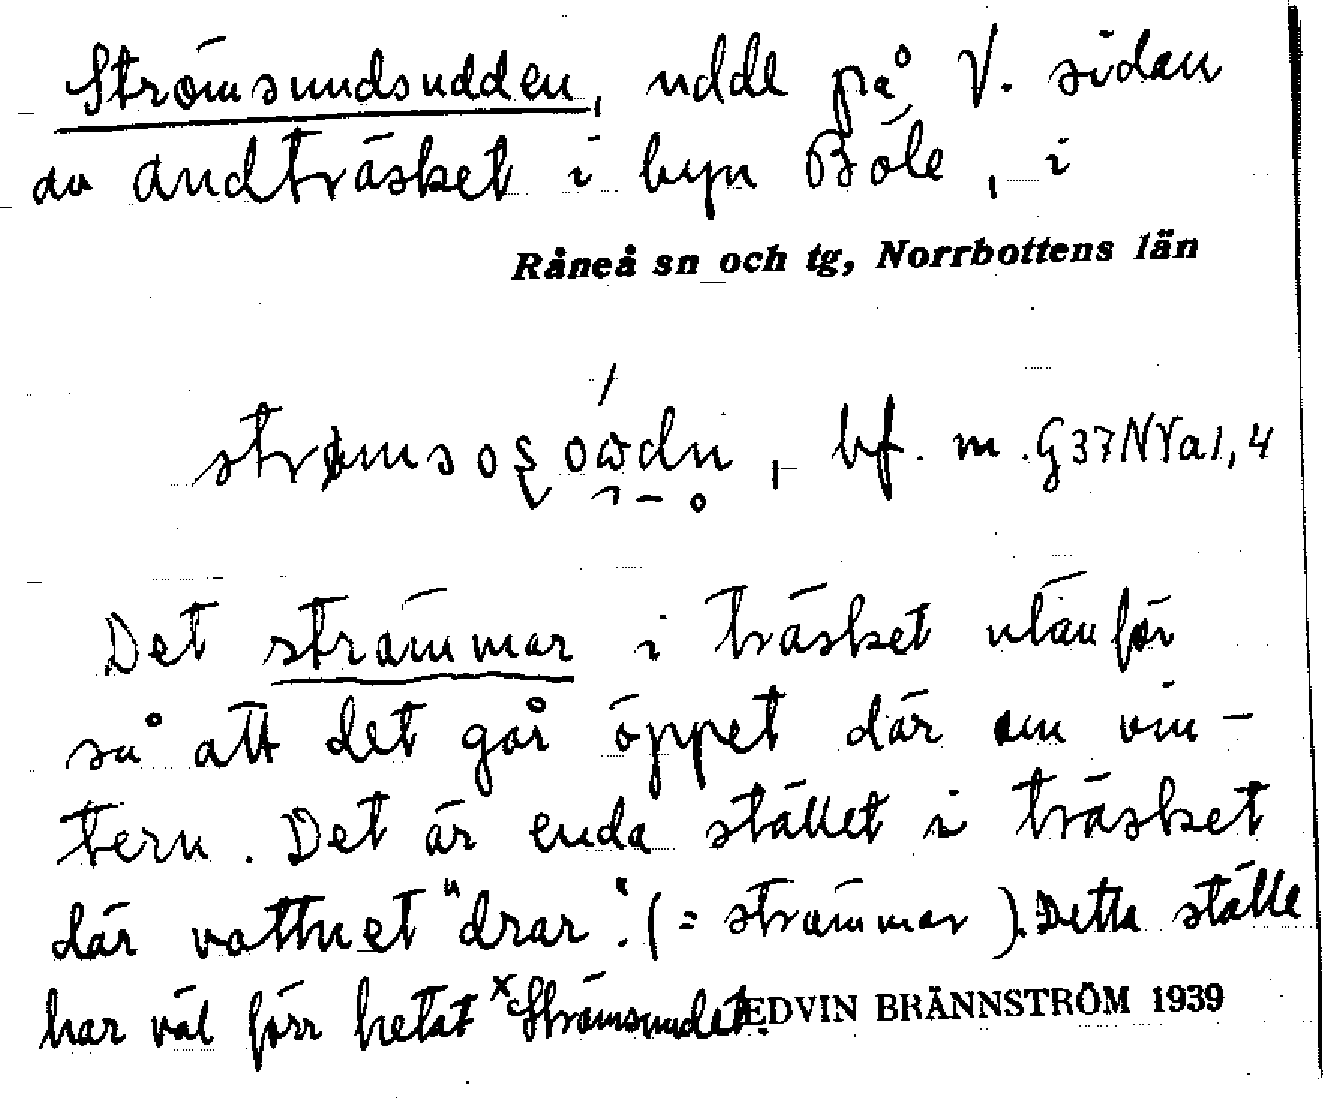 Strömsundsudden, udde på V. sidan
av Andträsket i byn Böle, i
Råneå sn och tg, Norrbottens län
bf. m. G37NYa1,4
Det strömmar i träsket utanför
så att det går öppet där om vin-
tern. Det är enda stället i träsket
där vattnet "drar". (= strömmar). Detta ställe
har väl förr hetat ˣStrömsundet.
EDVIN BRÄNNSTRÖM 1939